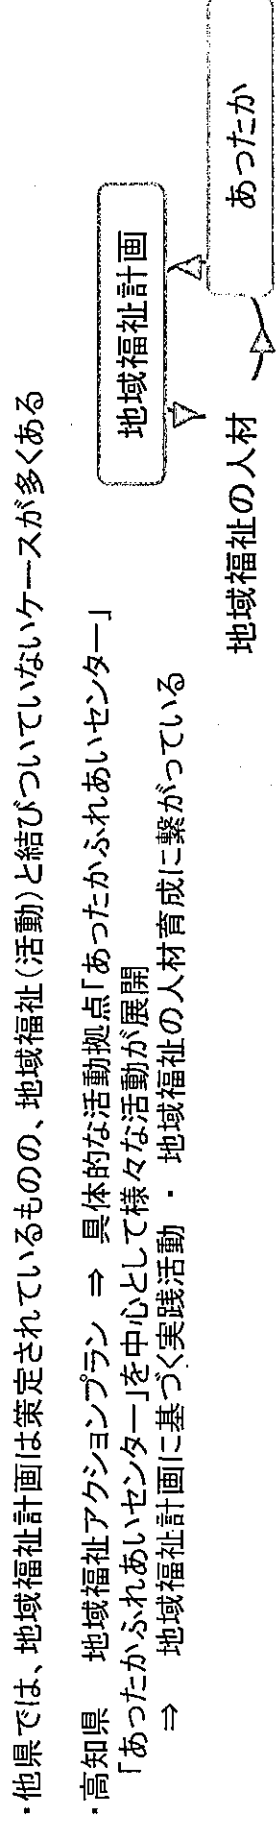 ・他県では、地域福祉計画は策定されているものの、地域福祉(活動)と結びついていないケースが多くある
・高知県　地域福祉アクションプラン ⇒ 具体的な活動拠点「あったかふれあいセンター」
「あったかふれあいセンター」を中心として様々な活動が展開
⇒　地域福祉計画に基づく実践活動 ・ 地域福祉の人材育成に繋がっている
地域福祉計画
地域福祉の人材
あったか